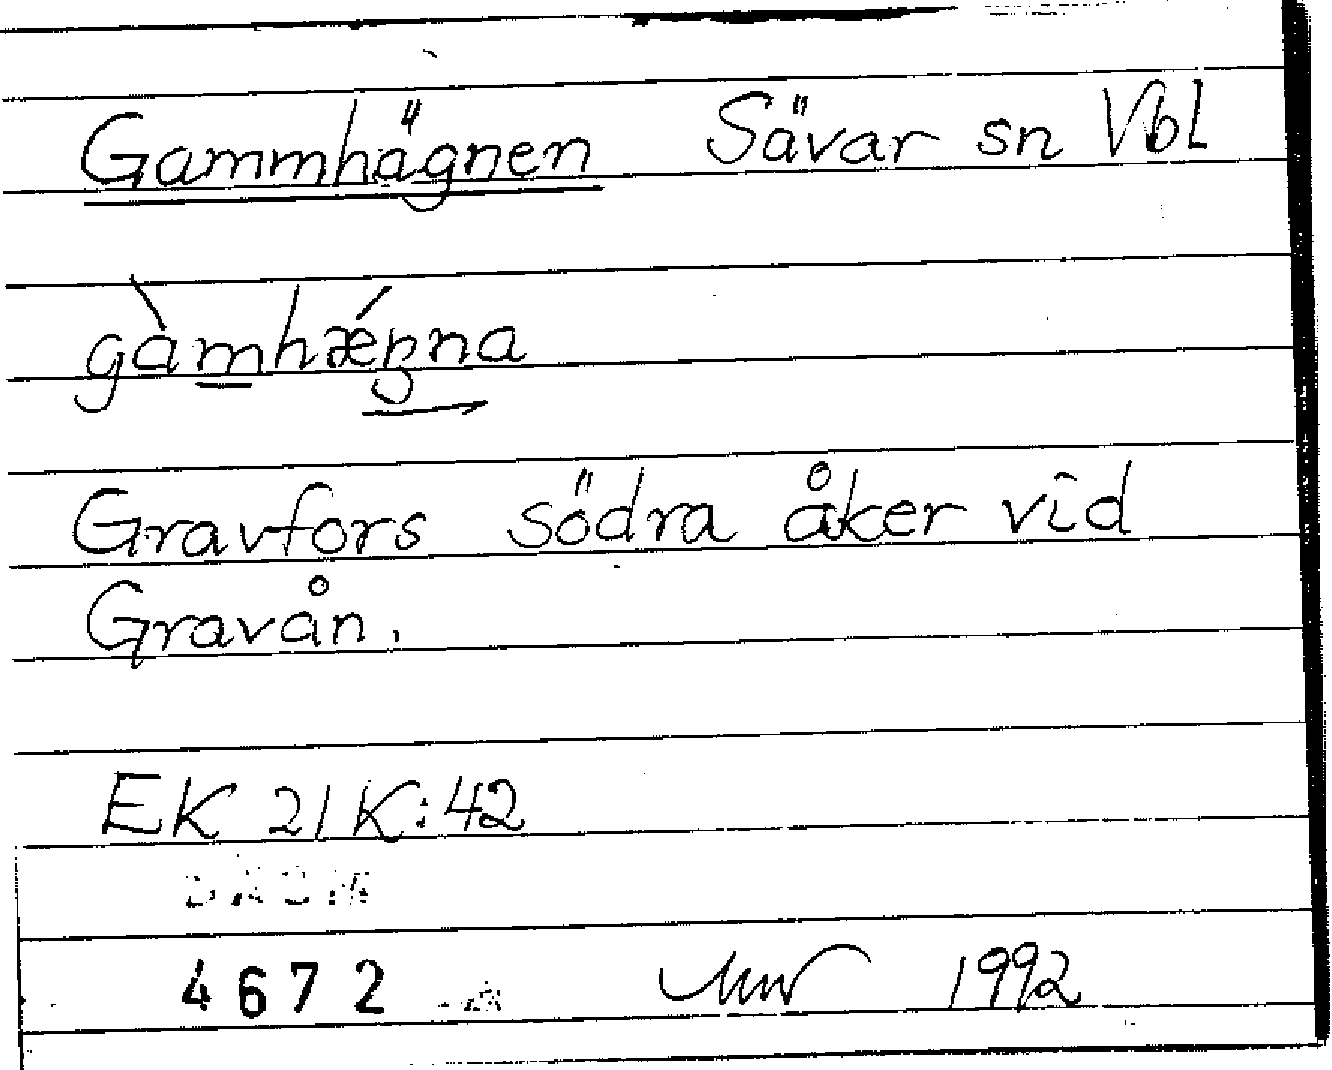 Gammhägnen Sävar sn Vbl
gàmhǽŋna
Gravfors södra åker vid
Gravån.
EK 21K:42
4672 1992